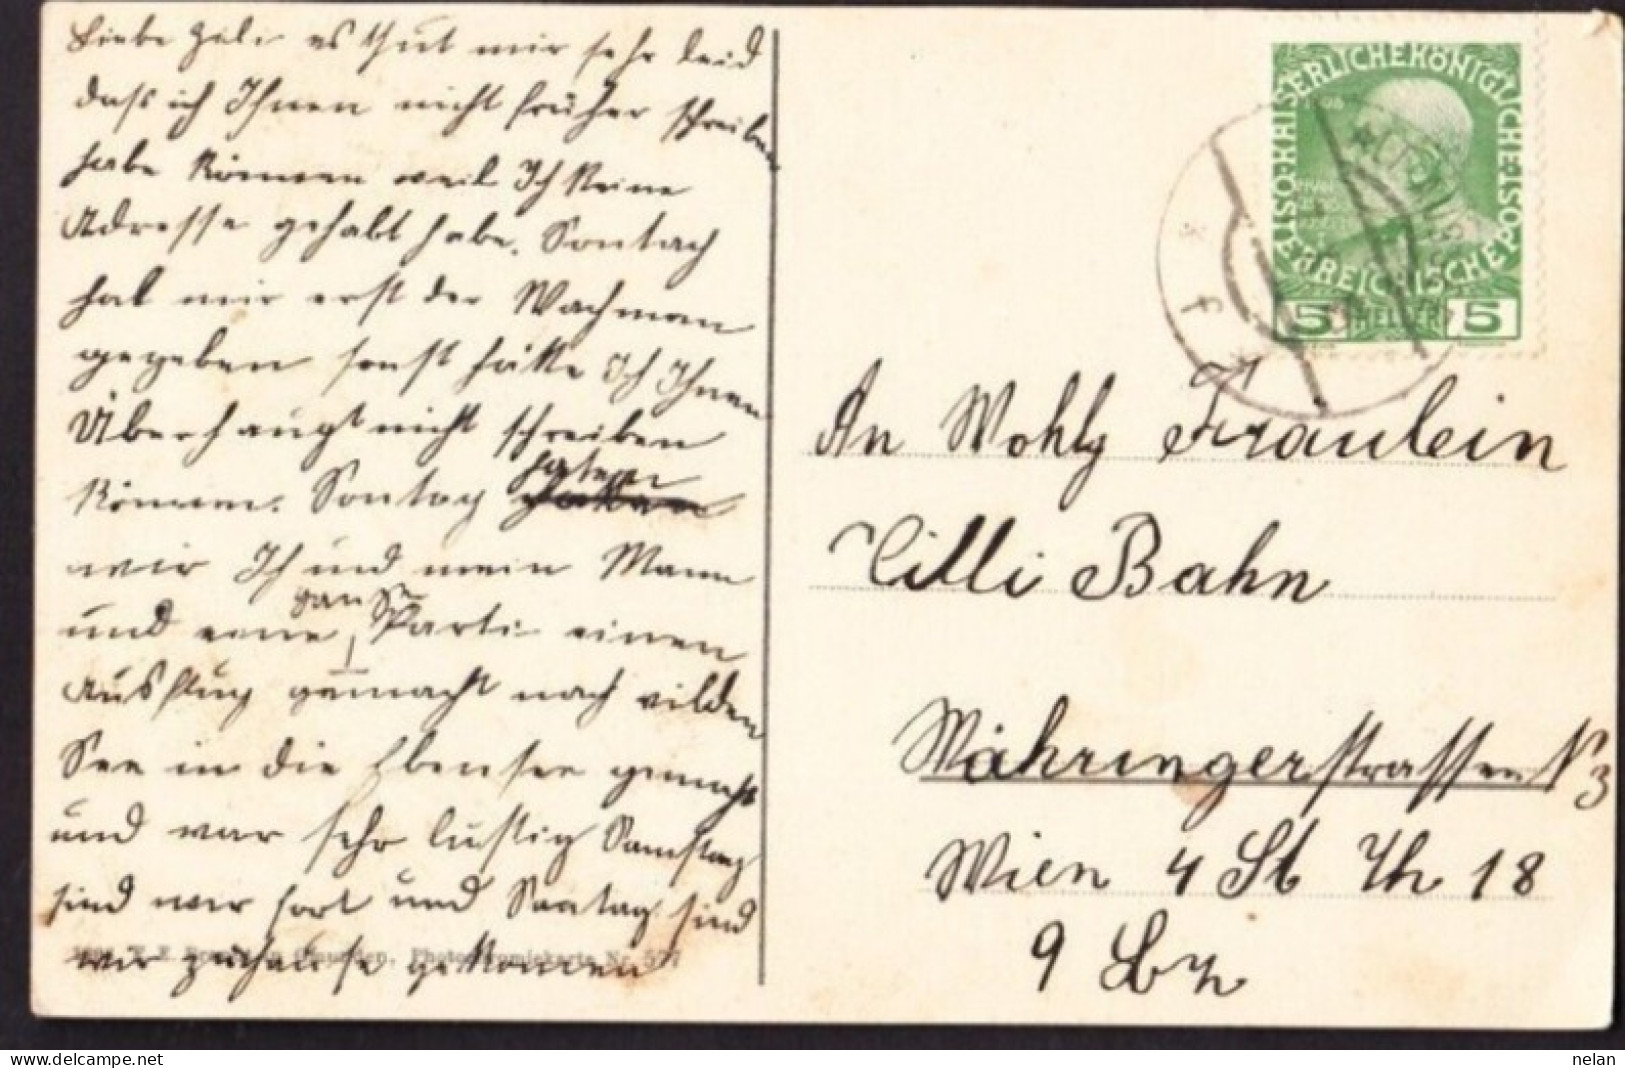 Liebe Zili es thut mir sehr leid
dass ich Ihnen nicht früher schreiben
habe können weil Ich keine
Adresse gehabt habe. Sontach
hat mir erst der Wachman
gegeben sonst hätte Ich Ihnen
Überhaugt nicht schreiben
können. Sontag haben
wir Ich und mein Mann
und eine ganse Parti einen
Ausflug gemacht nach vilden
See in die Ebensee gemacht
und war sehr lustig Samstag
sind wir fort und Sontag sind
wir zuhause gekomen
Photochromiekarte Nr. 577
KAISERLICHEKÖNIGLICHE
ÖSTERREICHISCHE POST
5 HELLER 5
An Wohlg Fräulein
Cilli Bahn
Währingerstrassen N 3
Wien 4 St Th 18
9 Bz
delcampe.net
nelan